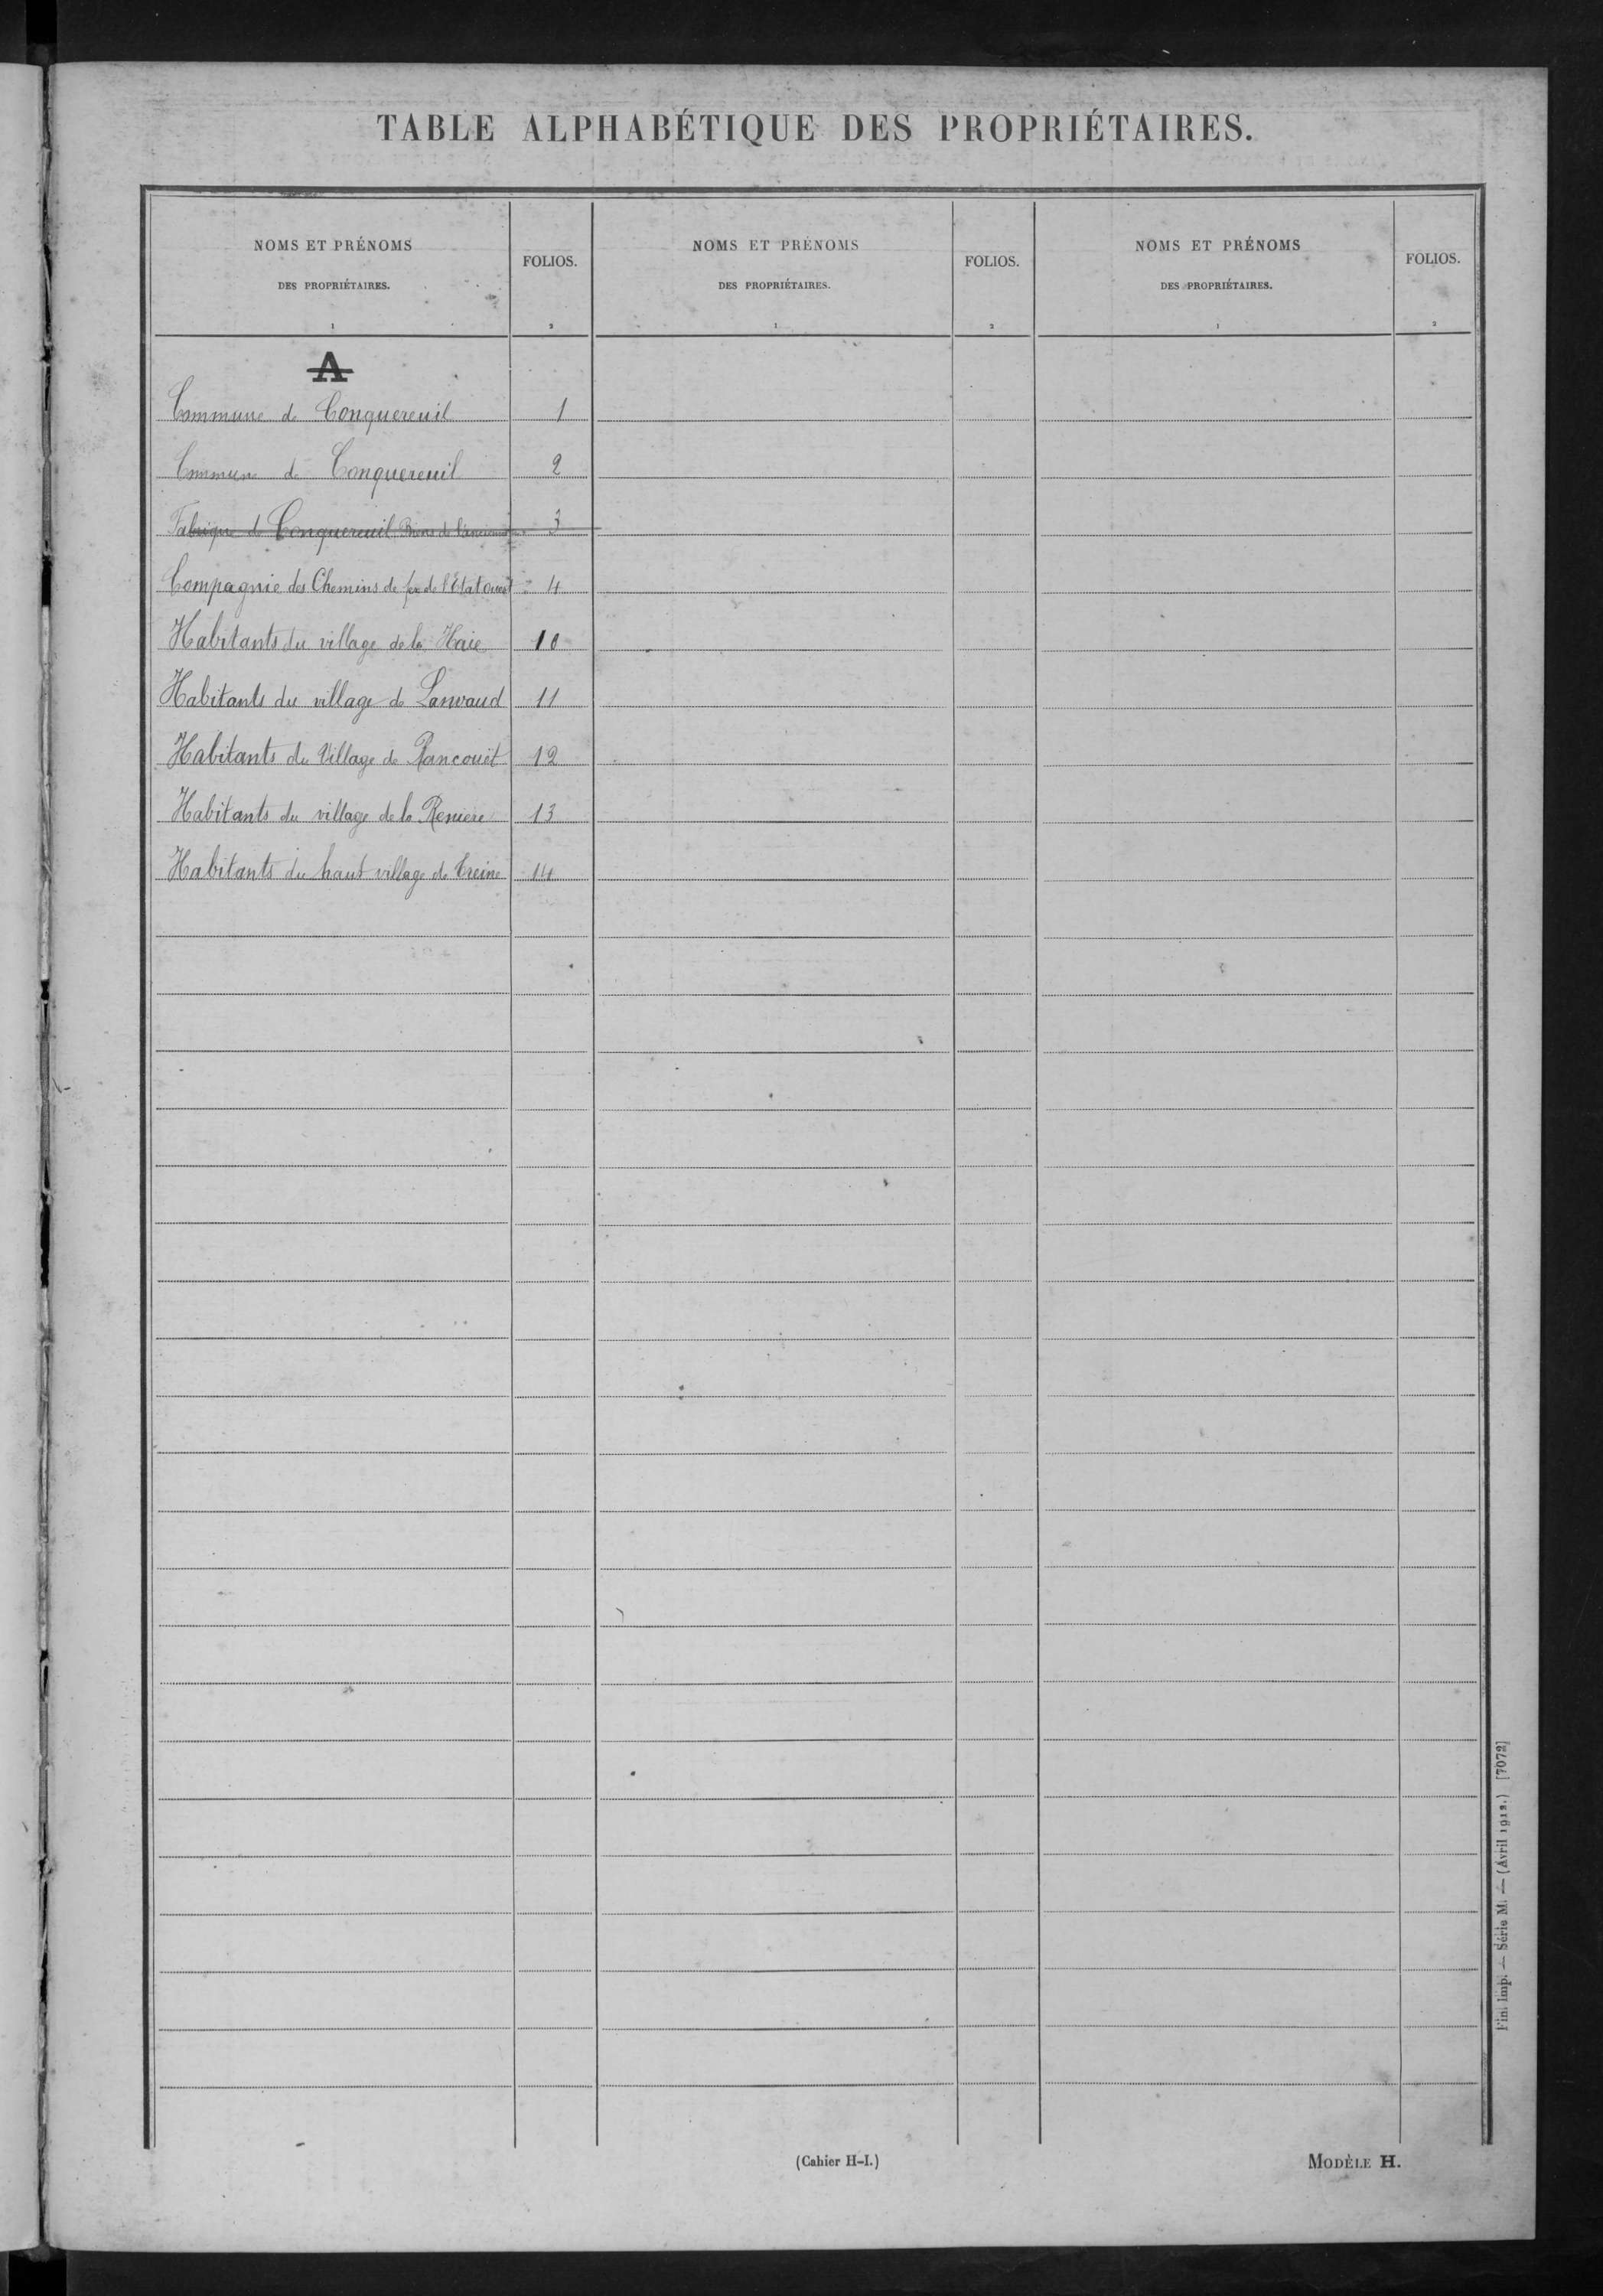 TABLE ALPHABÉTIQUE DES PROPRIÉTAIRES.
NOMS ET PRÉNOMS
DES PROPRIÉTAIRES.
1
FOLIOS.
2
NOMS ET PRÉNOMS
DES PROPRIÉTAIRES.
1
FOLIOS.
2
NOMS ET PRÉNOMS
DES PROPRIÉTAIRES.
1
FOLIOS.
2
A
Commune de Conquereuil 1
Commune de Conquereuil 2
Fabrique de Conquereuil Biens de l'ancienne 3
Compagnie des Chemins de fer de l'Etat Ouest 4
Habitants du village de la Haie 10
Habitants du village de Lanvaud 11
Habitants du Village de Rancouët 12
Habitants du village de la Reniere 13
Habitants du haut village de Treine 14
(Cahier H-I.)
MODÈLE H.
Fin. imp. — Série M. — (Avril 1912.) [7072]